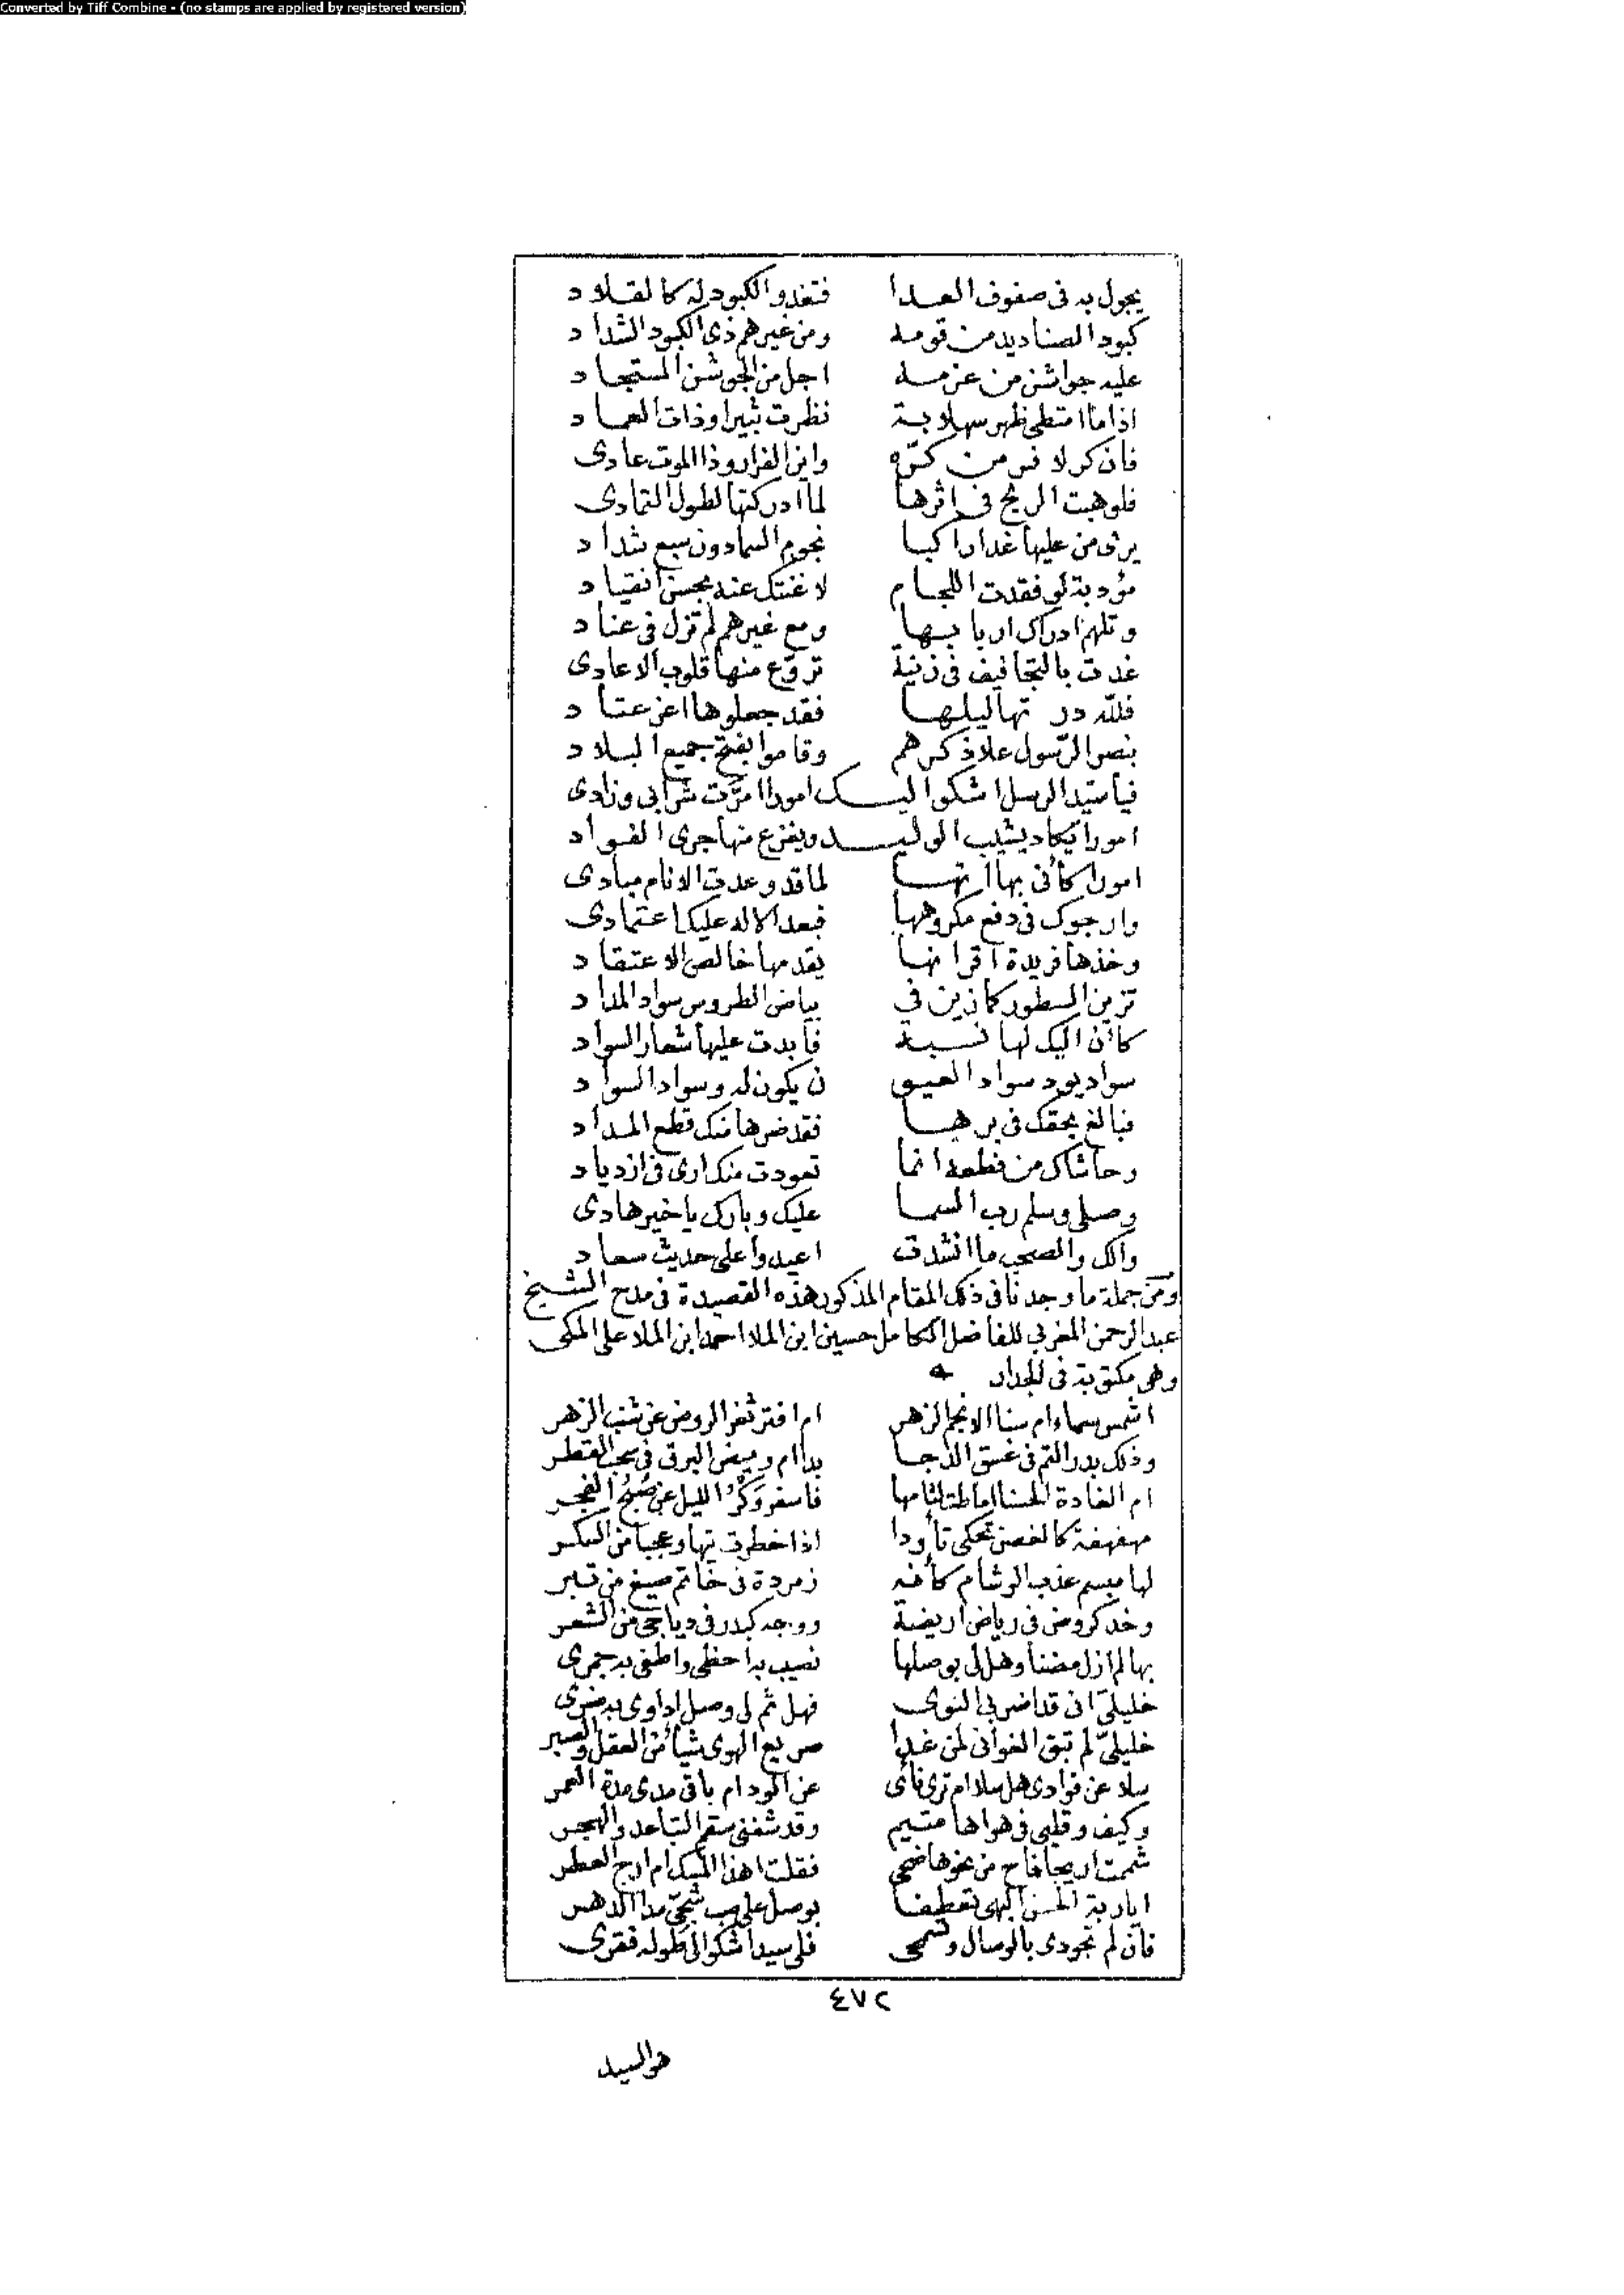 Converted by Tiff Combine - (no stamps are applied by registered version)
يجول به فى صفوف العدا فتغدو الكبود له كالقلاد
كبود الصناديد من قومه ومن غيرهم ذى الكبود الشداد
عليه جواشن من عزمه اجل من الجوشن المستجاد
اذا ما امتطى ظهر سهلابة نظرت ثبيرا وذات العماد
فان كر لا فر من كرّه واين الفرار وذا الموت عادى
فلو هبت الريح فى اثرها لما ادركتها لطول التمادى
يرى من عليها غدا راكبا نجوم السما دون سبع شداد
مؤدبة لو فقدت اللجام لاغنتك عنه بحسن انقياد
وتلهم ادراك اربابها ومع غيرهم لم تزل فى عناد
غدت بالتجافيف فى زنية تروّع منها قلوب الاعادى
فللّه در تهاليلها فقد جعلوها اعز عتاد
بنصر الرّسول علا ذكرهم وقاموا بفتح جميع البلاد
فيا سيّد الرسل اشكوا اليك امورا امرّت شرابى وزادى
امورا يكاد يشيب الوليد ويفزع منها جرى الفواد
امورا كأنى بها انها لما قد وعدت الانام مبادى
وارجوك فى دفع مكروهها فبعد الاله عليك اعتمادى
وخذها فريدة اقرانها يقدمها خالص الاعتقاد
تزين السطور كما زين فى بياض الطروس سواد المداد
كأن اليك لها نسبة فابدت عليها شعار السواد
سواد يود سواد العيون يكون له وسواد السواد
فبالغ بحقك فى برها فقد ضرها منك قطع المداد
وحاشاك من قطعه انما تعودت منك ارى فى ازدياد
وصلى وسلم رب السما عليك وبارك يا خير هادى
والك والصحب ما انشدت اعيدوا على حديث سعاد
ومن جملة ما وجدنا فى ذلك المقام المذكور هذه القصيدة فى مدح الشيخ
عبد الرحمن المغربي للفاضل الكامل حسين ابن الملا احمد ابن الملا على المكى
وهى مكتوبة فى الجدار
اشمس سماء ام سنا الانجم الزهر ام افتر ثغر الروض عن شنب الزهر
وذلك بدر التم فى غسق الدجا بدا ام وميض البرق فى سحب القطر
ام الغادة الحسنا اماطت لثامها فاسفر وكر الليل عن صبح الفجر
مهفهفة كالغصن تحكى تأودا اذا خطرت تيها وعجبا من السكر
لها مبسم عذب الرشام كأنه زمردة فى خاتم صيغ من تبر
وخد كروض فى رياض اريضة ووجه كبدر فى دياجى من الشعر
بها لم ازل مضنا وهل لى بوصلها نصيب به احظى واطفى به جمرى
خليليّ انى قد اضر بي النوى فهل ثم لى وصل اداوى به ضرى
خليليّ لم تبق الغوانى لمن غدا صريع الهوى شيأ من العقل والصبر
سلا عن فوادى هل سلا ام ترى نأى عن الود ام باقى مدى مدة العمر
وكيف وقلبى فى هواها متيم وقد شفنى سقم التباعد والهجر
شممت اريجا فاح من نحوها ضحى فقلت اهذا المسك ام ارج العطر
ايا ربة الحسن البهى تعطفا بوصل على صب شجيّ مدا الدهر
فان لم تجودى بالوصال وتسمحى فلى سيد اشكوا الى طوله فقرى
٤٧٢
هو السيد